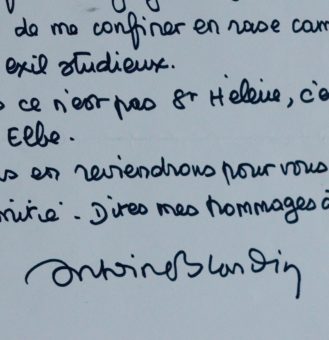 de me confiner en rase cam
exil studieux.
ce n'est pas Ste Hélène, c'e
Elbe.
s en reviendrons pour vous
mitié. Dites mes hommages à
Antoine Blondin